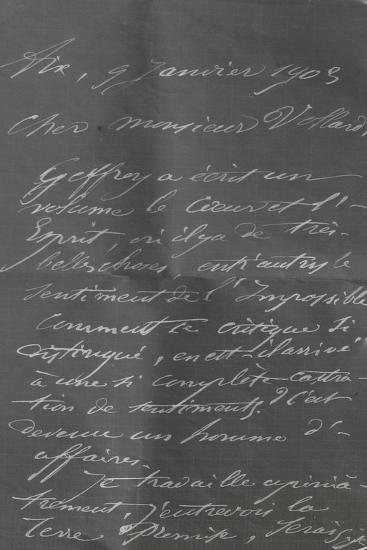 Aix, 9 Janvier 1903
Cher monsieur Vollard,
Geffroy a écrit un
volume le Cœur et l'-
Esprit, où il y a de très-
belles choses entr'autres le
Sentiment de l'Impossible
Comment ce critique si
distingué, en est-il arrivé
à une si complète castra-
tion de sentiments. C'est
devenu un homme d'-
affaires.
Je travaille opiniâ-
trement, j'entrevois la
Terre promise, Serais-je